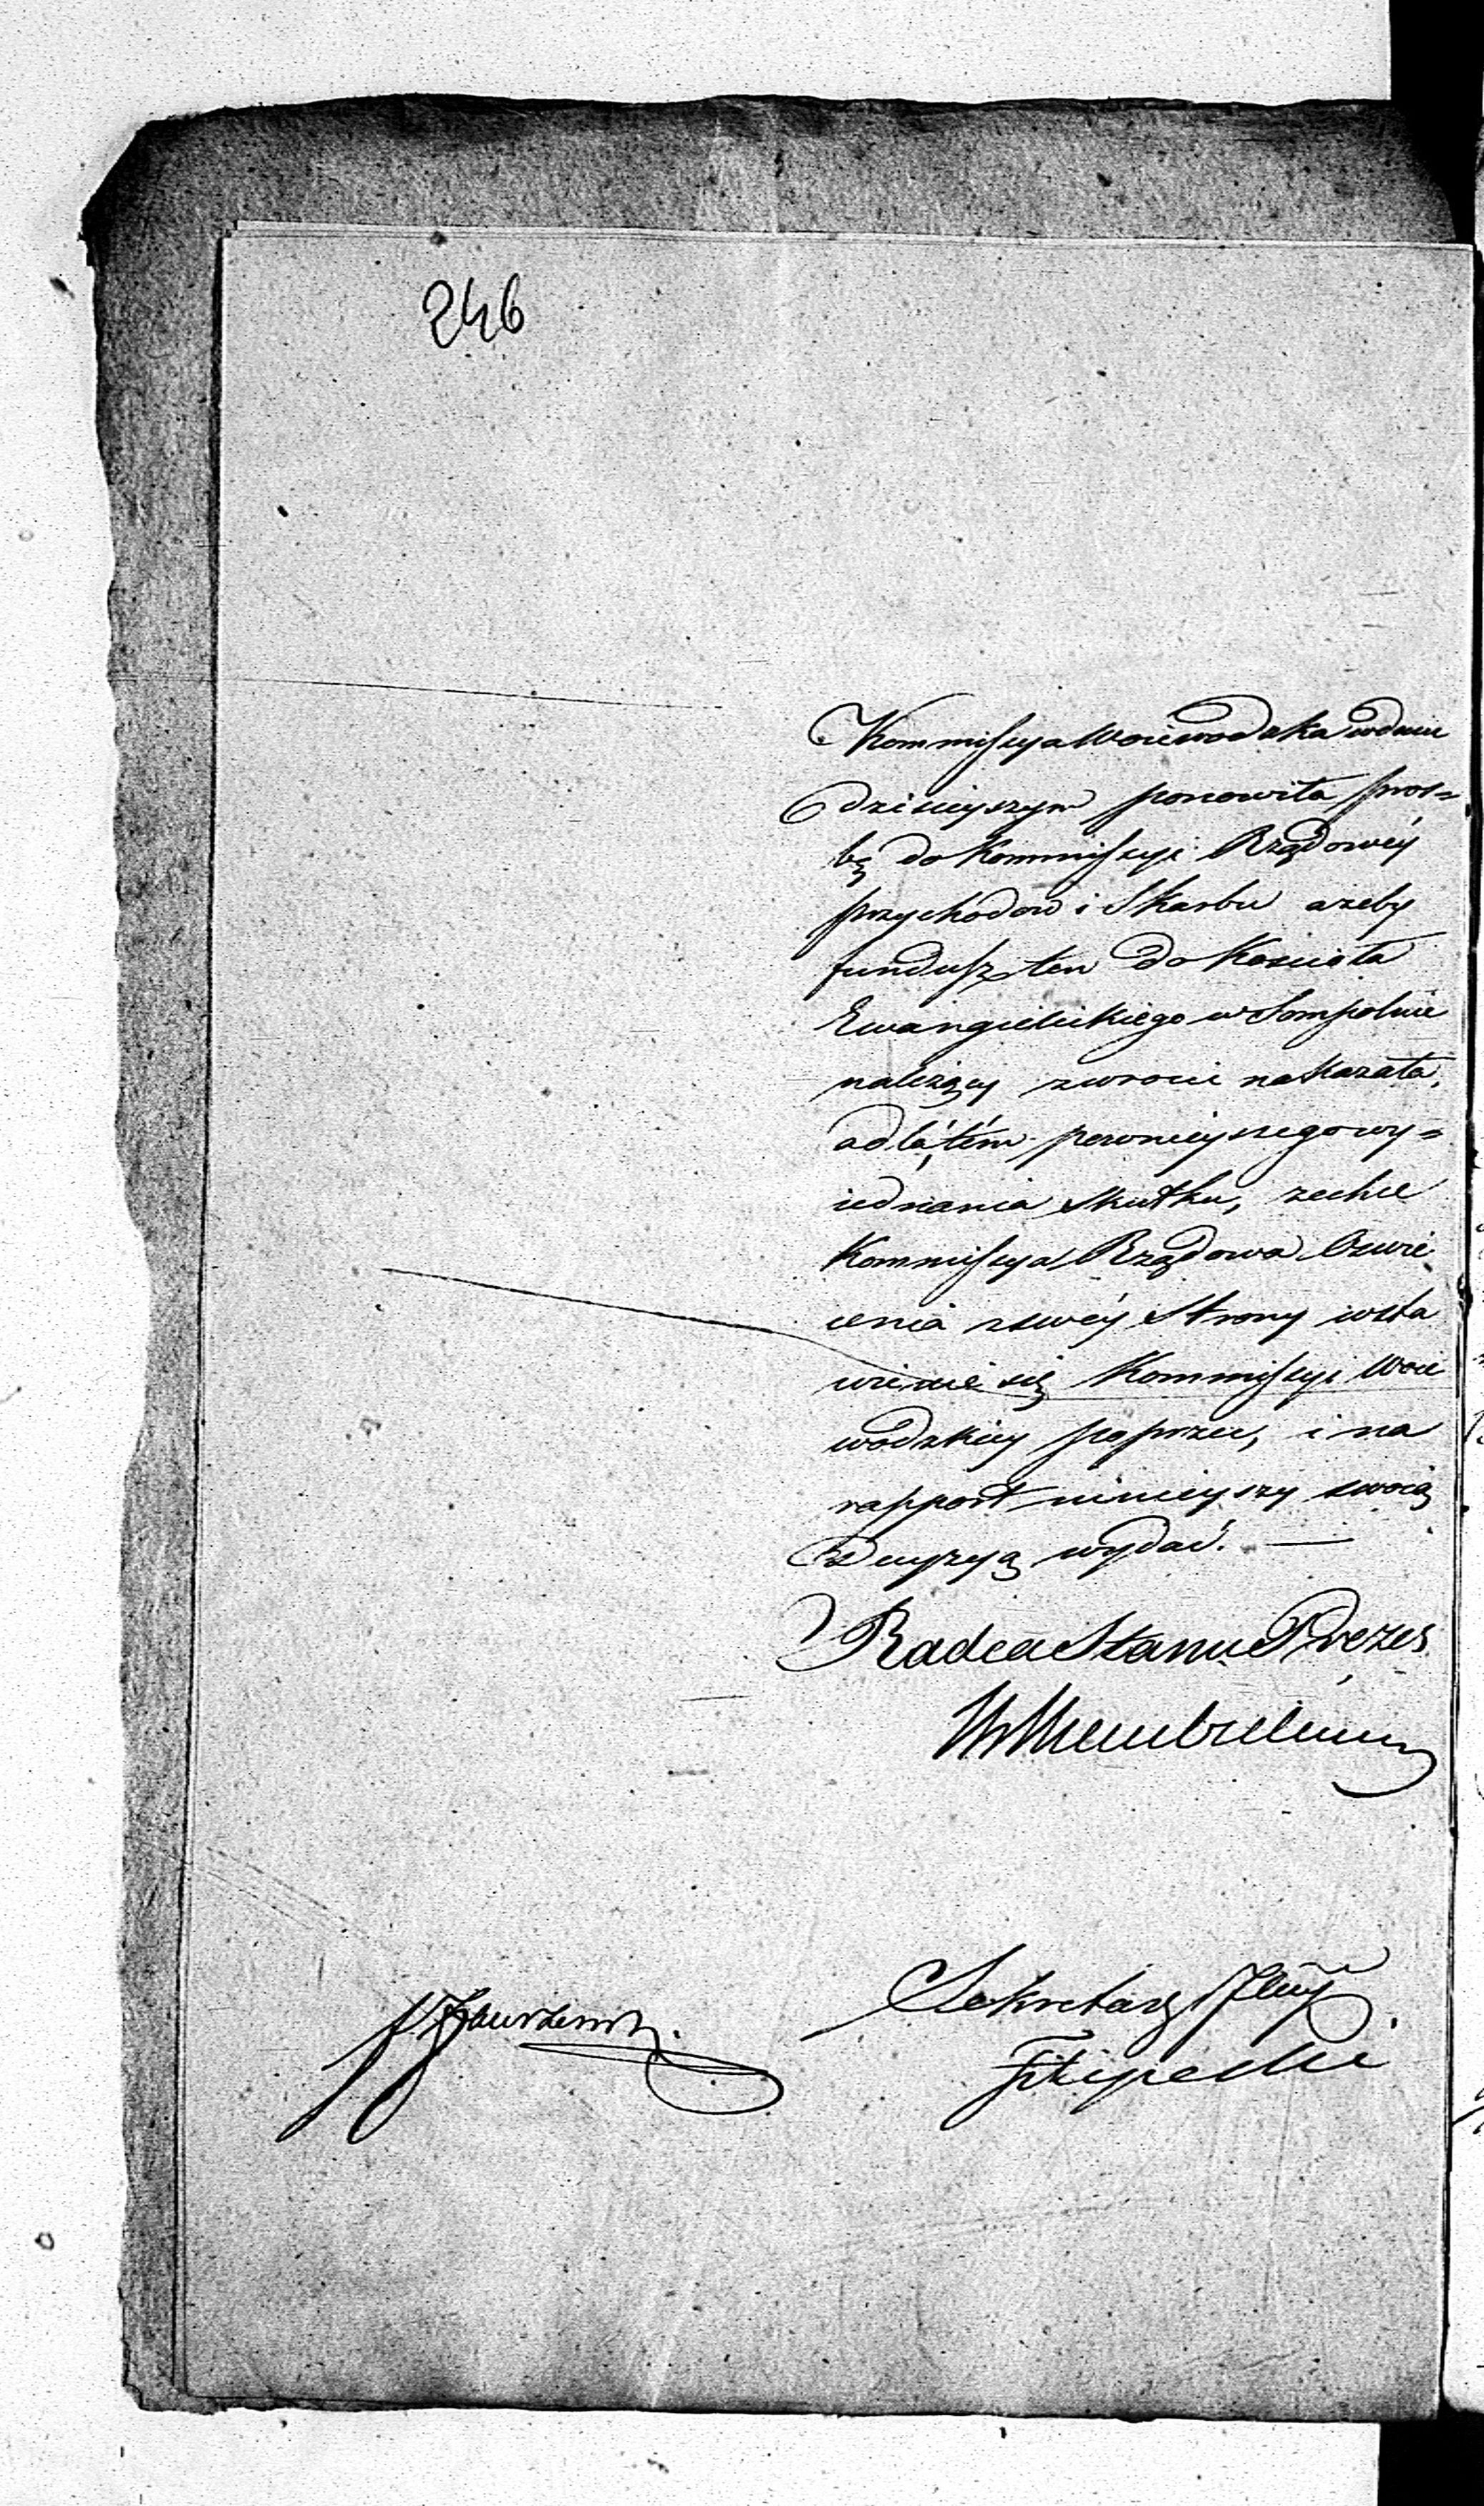 246
Kommissya Woiewodzka w dniu
dzisieyszym ponowiła proś=
bę do Kommissyi Rządowéy
przychodow i Skarbu ażeby
fundusz ten do Kościoła
Ewangielickiego w Sompolnie
należący zwrocić nakazała,
a dla tém pewnieyszego wy=
iednania skutku, zechce
Kommissya Rządowa Oswie
cenia z swéy Strony wsta
wienie się Kommissyi Woie
wodzkiey poprzeć, i na
rapport ninieyszy swoię
Decyzyą wydać. —
Radca Stanu Prezes
Sekretarz Jlny
Filipecki